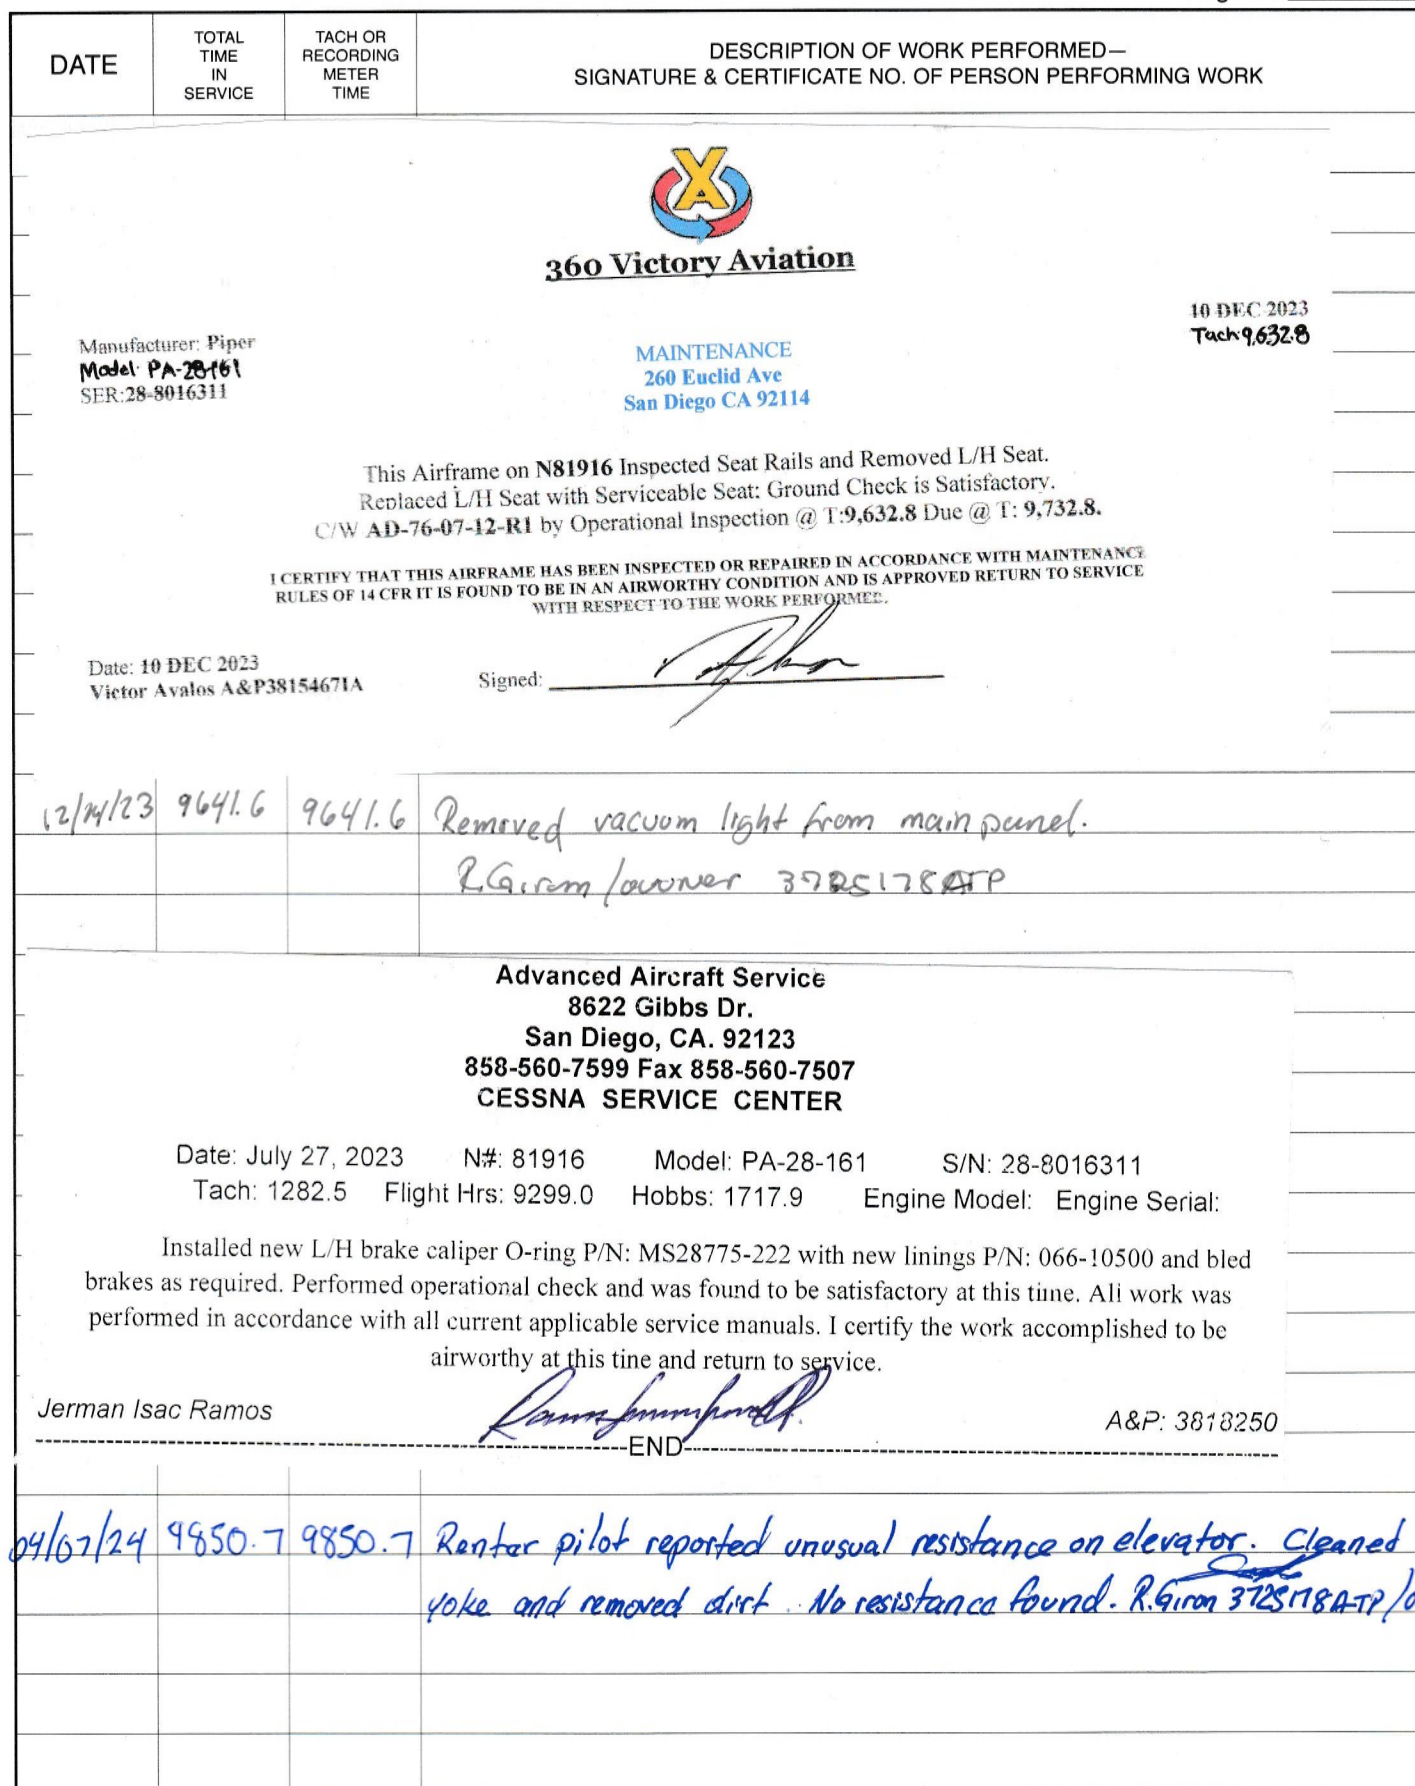 DATE
TOTAL
TIME
IN
SERVICE
TACH OR
RECORDING
METER
TIME
DESCRIPTION OF WORK PERFORMED—
SIGNATURE & CERTIFICATE NO. OF PERSON PERFORMING WORK
360 Victory Aviation
10 DEC 2023
Tach:9,632.8
Manufacturer: Piper
Model: PA-28-161
SER:28-8016311
MAINTENANCE
260 Euclid Ave
San Diego CA 92114
This Airframe on N81916 Inspected Seat Rails and Removed L/H Seat.
Replaced L/H Seat with Serviceable Seat: Ground Check is Satisfactory.
C/W AD-76-07-12-R1 by Operational Inspection @ T:9,632.8 Due @ T: 9,732.8.
I CERTIFY THAT THIS AIRFRAME HAS BEEN INSPECTED OR REPAIRED IN ACCORDANCE WITH MAINTENANCE
RULES OF 14 CFR IT IS FOUND TO BE IN AN AIRWORTHY CONDITION AND IS APPROVED RETURN TO SERVICE
WITH RESPECT TO THE WORK PERFORMED.
Date: 10 DEC 2023
Victor Avalos A&P3815467IA
Signed:
12/14/23 9641.6 9641.6 Removed vacuum light from main panel.
R.Giron/owner 3725178ATP
Advanced Aircraft Service
8622 Gibbs Dr.
San Diego, CA. 92123
858-560-7599 Fax 858-560-7507
CESSNA SERVICE CENTER
Date: July 27, 2023 N#: 81916 Model: PA-28-161 S/N: 28-8016311
Tach: 1282.5 Flight Hrs: 9299.0 Hobbs: 1717.9 Engine Model: Engine Serial:
Installed new L/H brake caliper O-ring P/N: MS28775-222 with new linings P/N: 066-10500 and bled
brakes as required. Performed operational check and was found to be satisfactory at this time. All work was
performed in accordance with all current applicable service manuals. I certify the work accomplished to be
airworthy at this tine and return to service.
Jerman Isac Ramos A&P: 3818250
END
04/07/24 9850.7 9850.7 Renter pilot reported unusual resistance on elevator. Cleaned
yoke and removed dirt. No resistance found. R.Giron 3725178ATP/